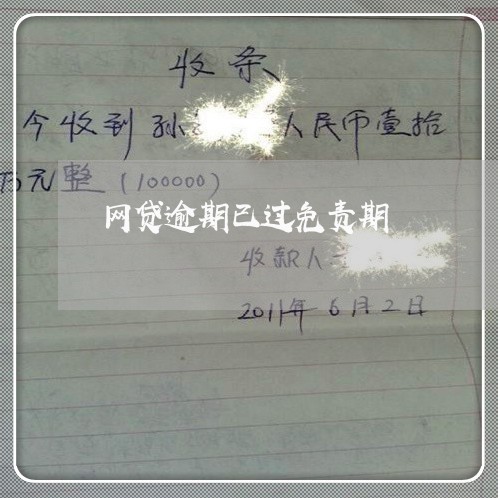 收条
今收到孙人民币壹拾
万元整(100000)
网贷逾期已过免责期
收款人
2011年6月2日